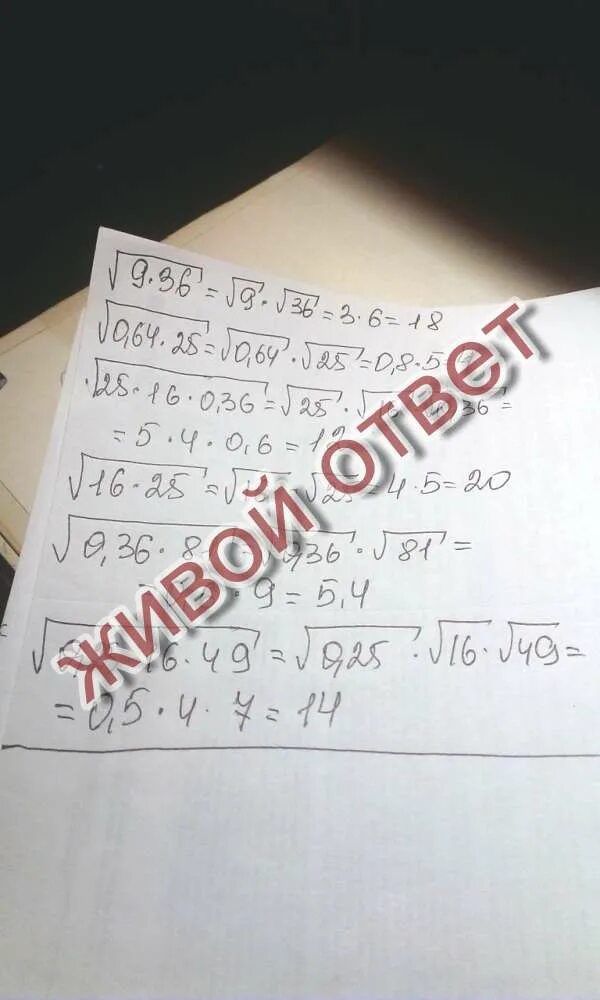 √9·36 = √9 · √36 = 3·6 = 18
√0,64·25 = √0,64 · √25 = 0,8·5
√25·16·0,36 = √25 · 36 =
= 5·4·0,6 = 12
√16·25 = √16 √25 = 4·5 = 20
√0,36·8 36 · √81 =
· 9 = 5,4
√0, 16·49 = √0,25 · √16 · √49 =
= 0,5·4·7 = 14
ЖИВОЙ ОТВЕТ